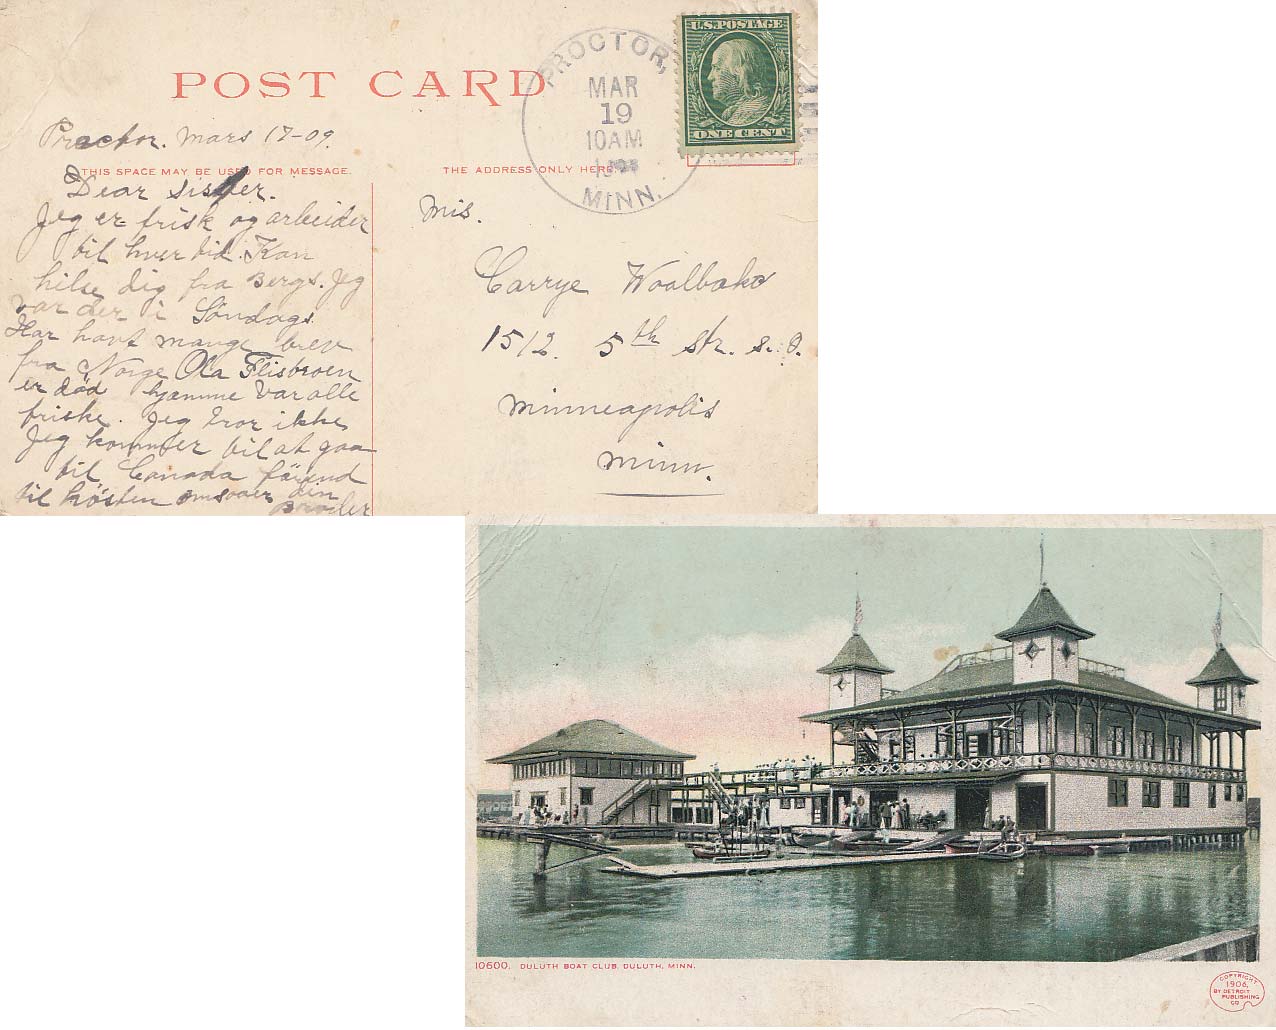 POST CARD
PROCTOR,
MAR
19
10AM
MINN.
U.S. POSTAGE
ONE CENT
Proctor. Mars 17-09.
THIS SPACE MAY BE USED FOR MESSAGE.
THE ADDRESS ONLY HERE.
Dear sister.
Jeg er frisk og arbeider
til hver tid. Kan
hilse dig fra Bergs. Jeg
var der i Söndags.
Har havt mange brev
fra Norge Ola Flisbroen
er död hjæmme var alle
friske. Jeg tror ikke
Jeg kommer til at gaa
til Canada förend
til hösten din
Broder
Mis.
Carrye Woolbakd
1512. 5th str. s.
Minneapolis
Minn.
10600. DULUTH BOAT CLUB, DULUTH, MINN.
COPYRIGHT,
1906,
BY DETROIT
PUBLISHING
CO